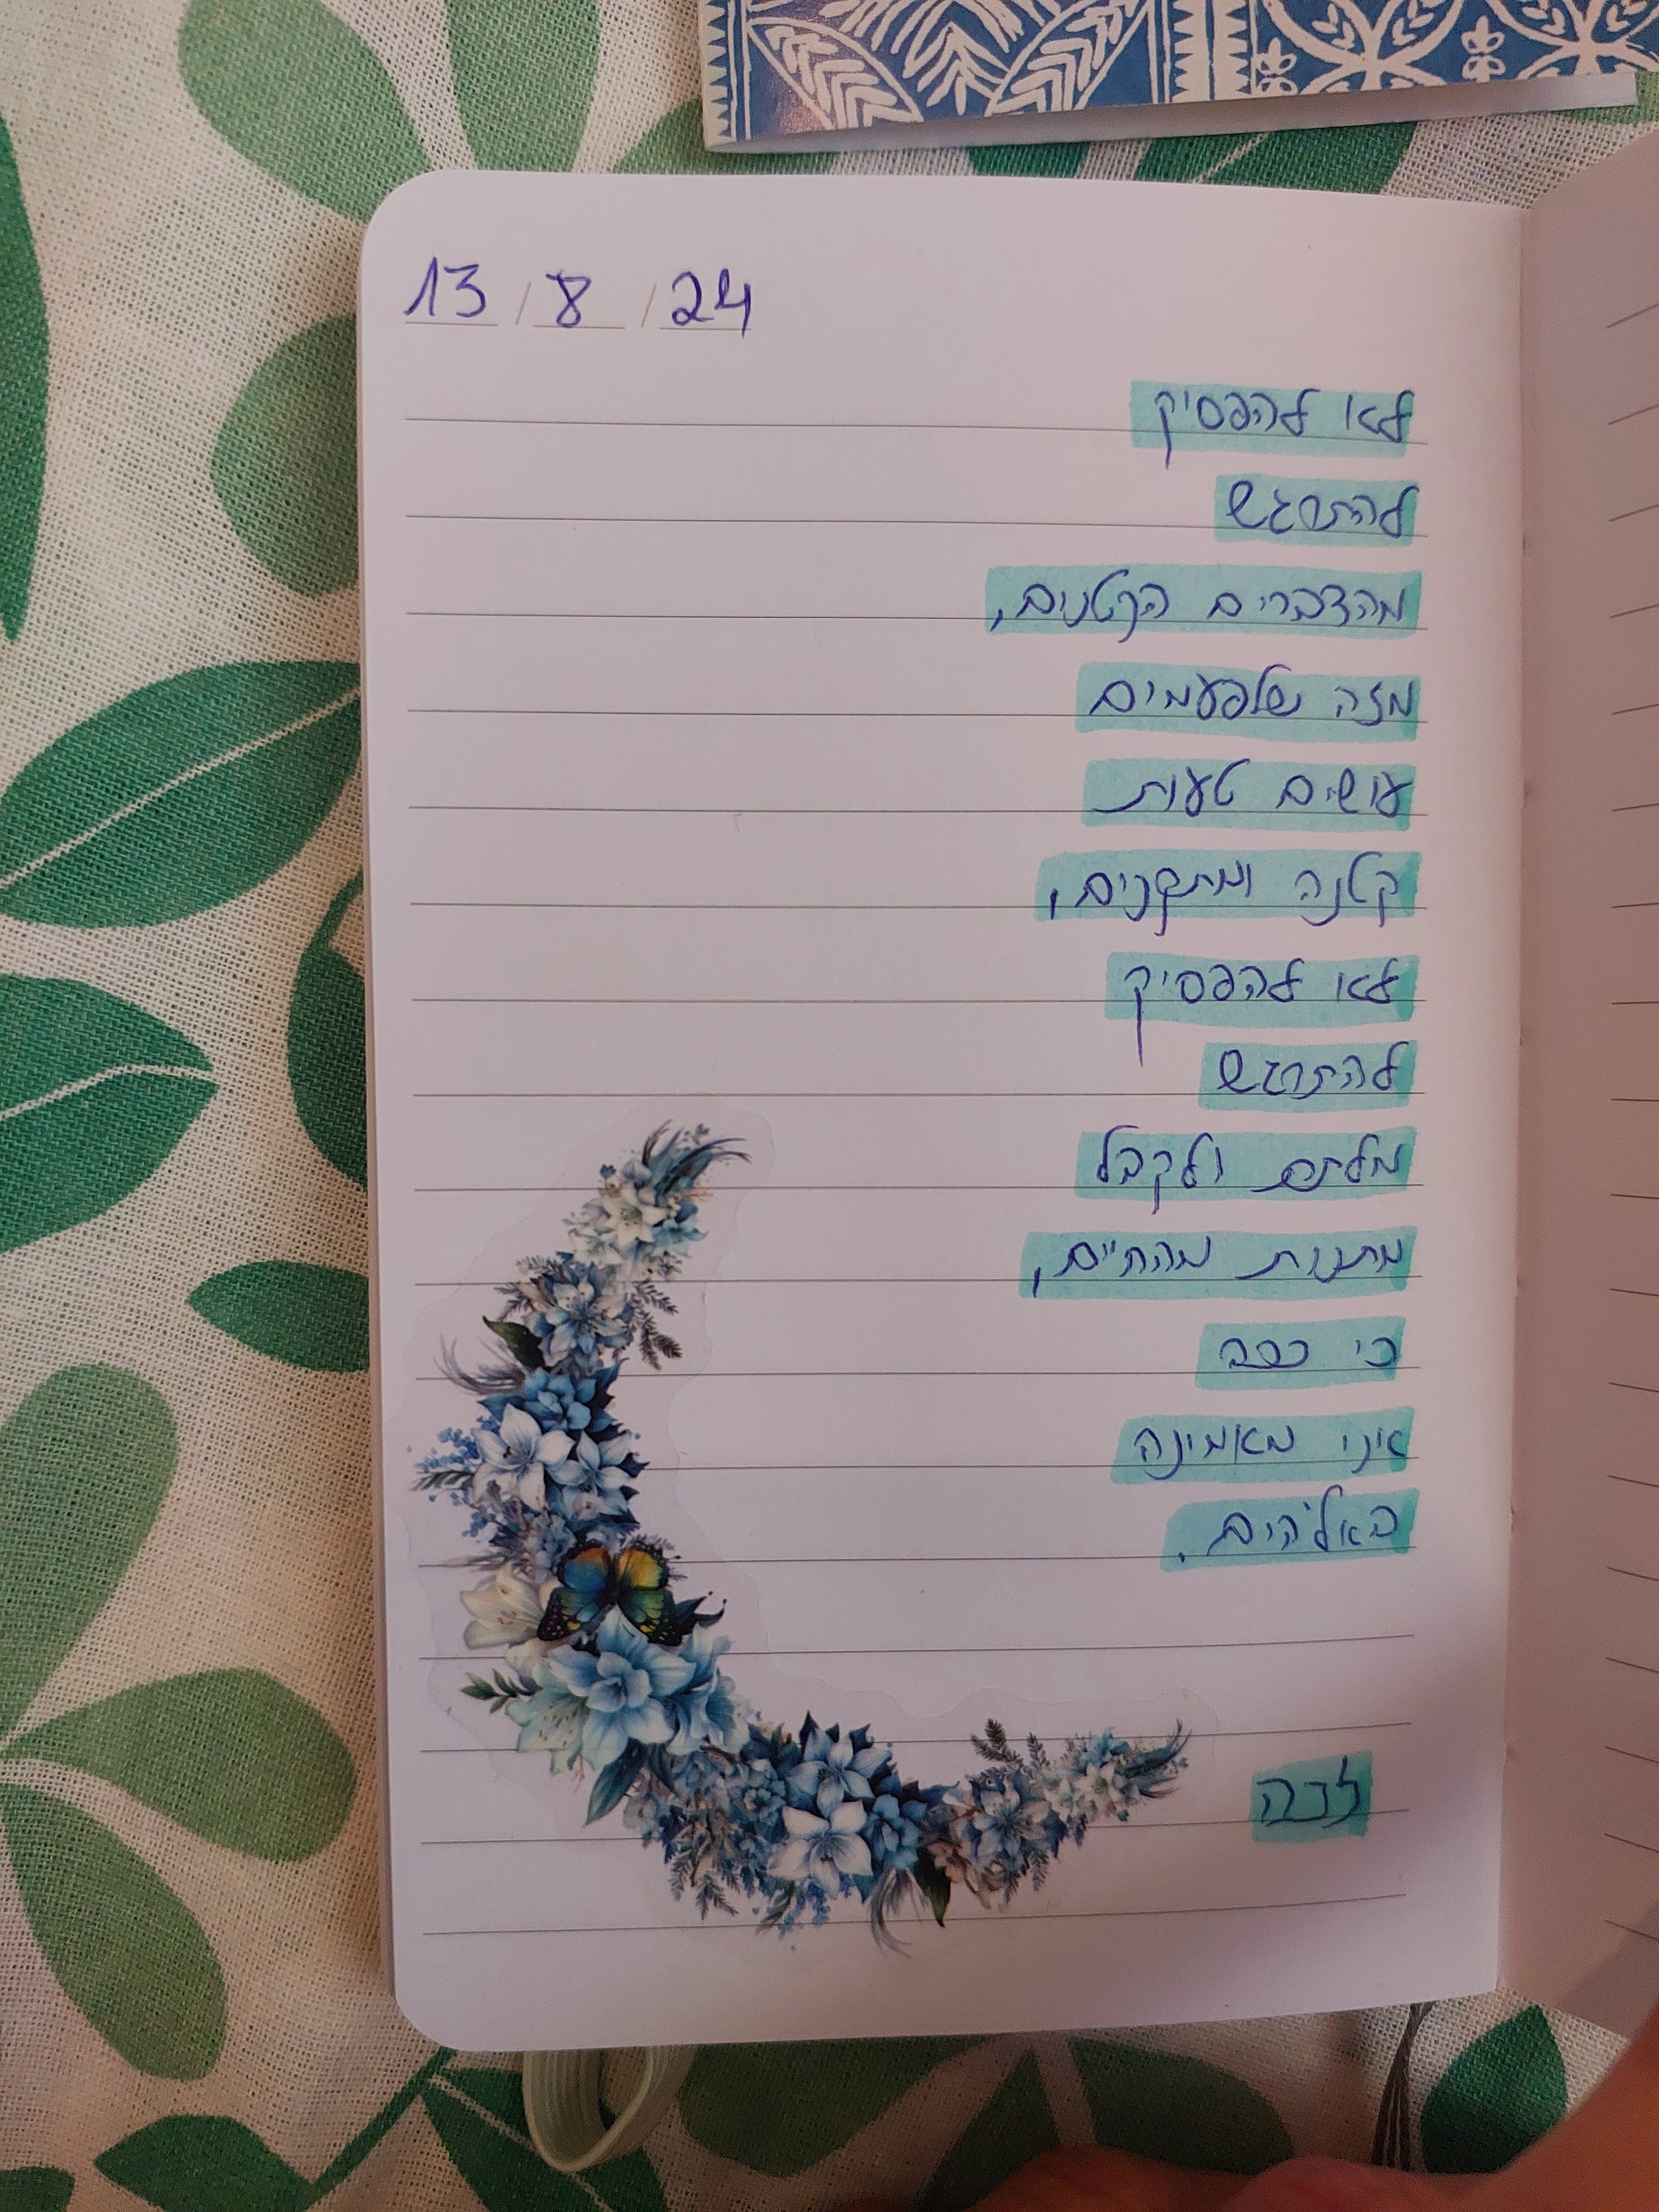 13/8/24
לא להפסיק
להתרגש
מהדברים הקטנים,
מזה שלפעמים
עושים טעות
קטנה ומתקנים,
לא להפסיק
להתרגש
מלתת ולקבל
מתנות מהחיים,
כי ככה
אני מאמינה
באלהים.